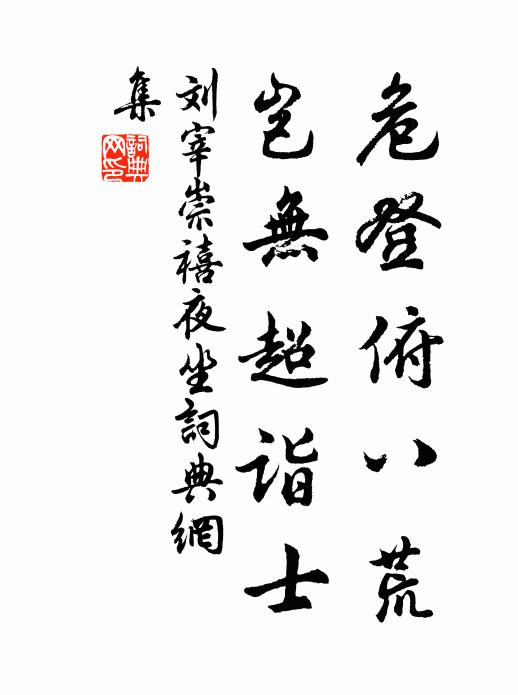 危登俯八荒
岂無超诣士
刘宰崇禧夜坐詞典網
集
詞典網印